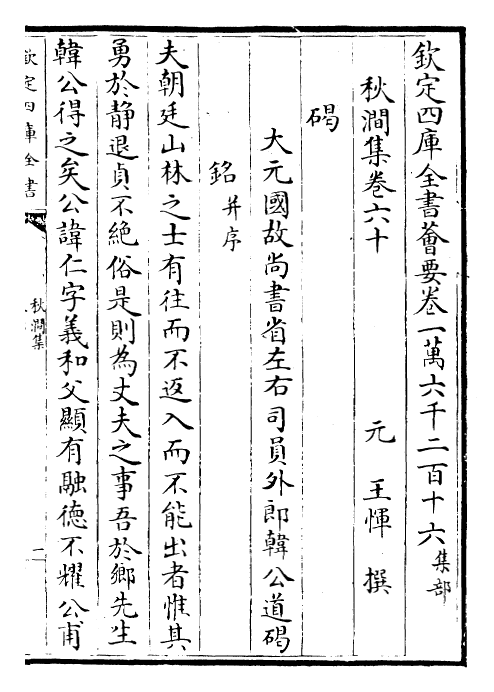 欽定四庫全書薈要卷一萬六千二百十六集部
秋澗集卷六十
元 王惲 撰
碣
大元國故尚書省左右司員外郎韓公道碣
銘并序
夫朝廷山林之士有往而不返入而不能出者惟其
勇於静退貞不絶俗是則為丈夫之事吾於鄉先生
韓公得之矣公諱仁字義和父顯有融德不耀公甫
欽定四庫全書
秋澗集